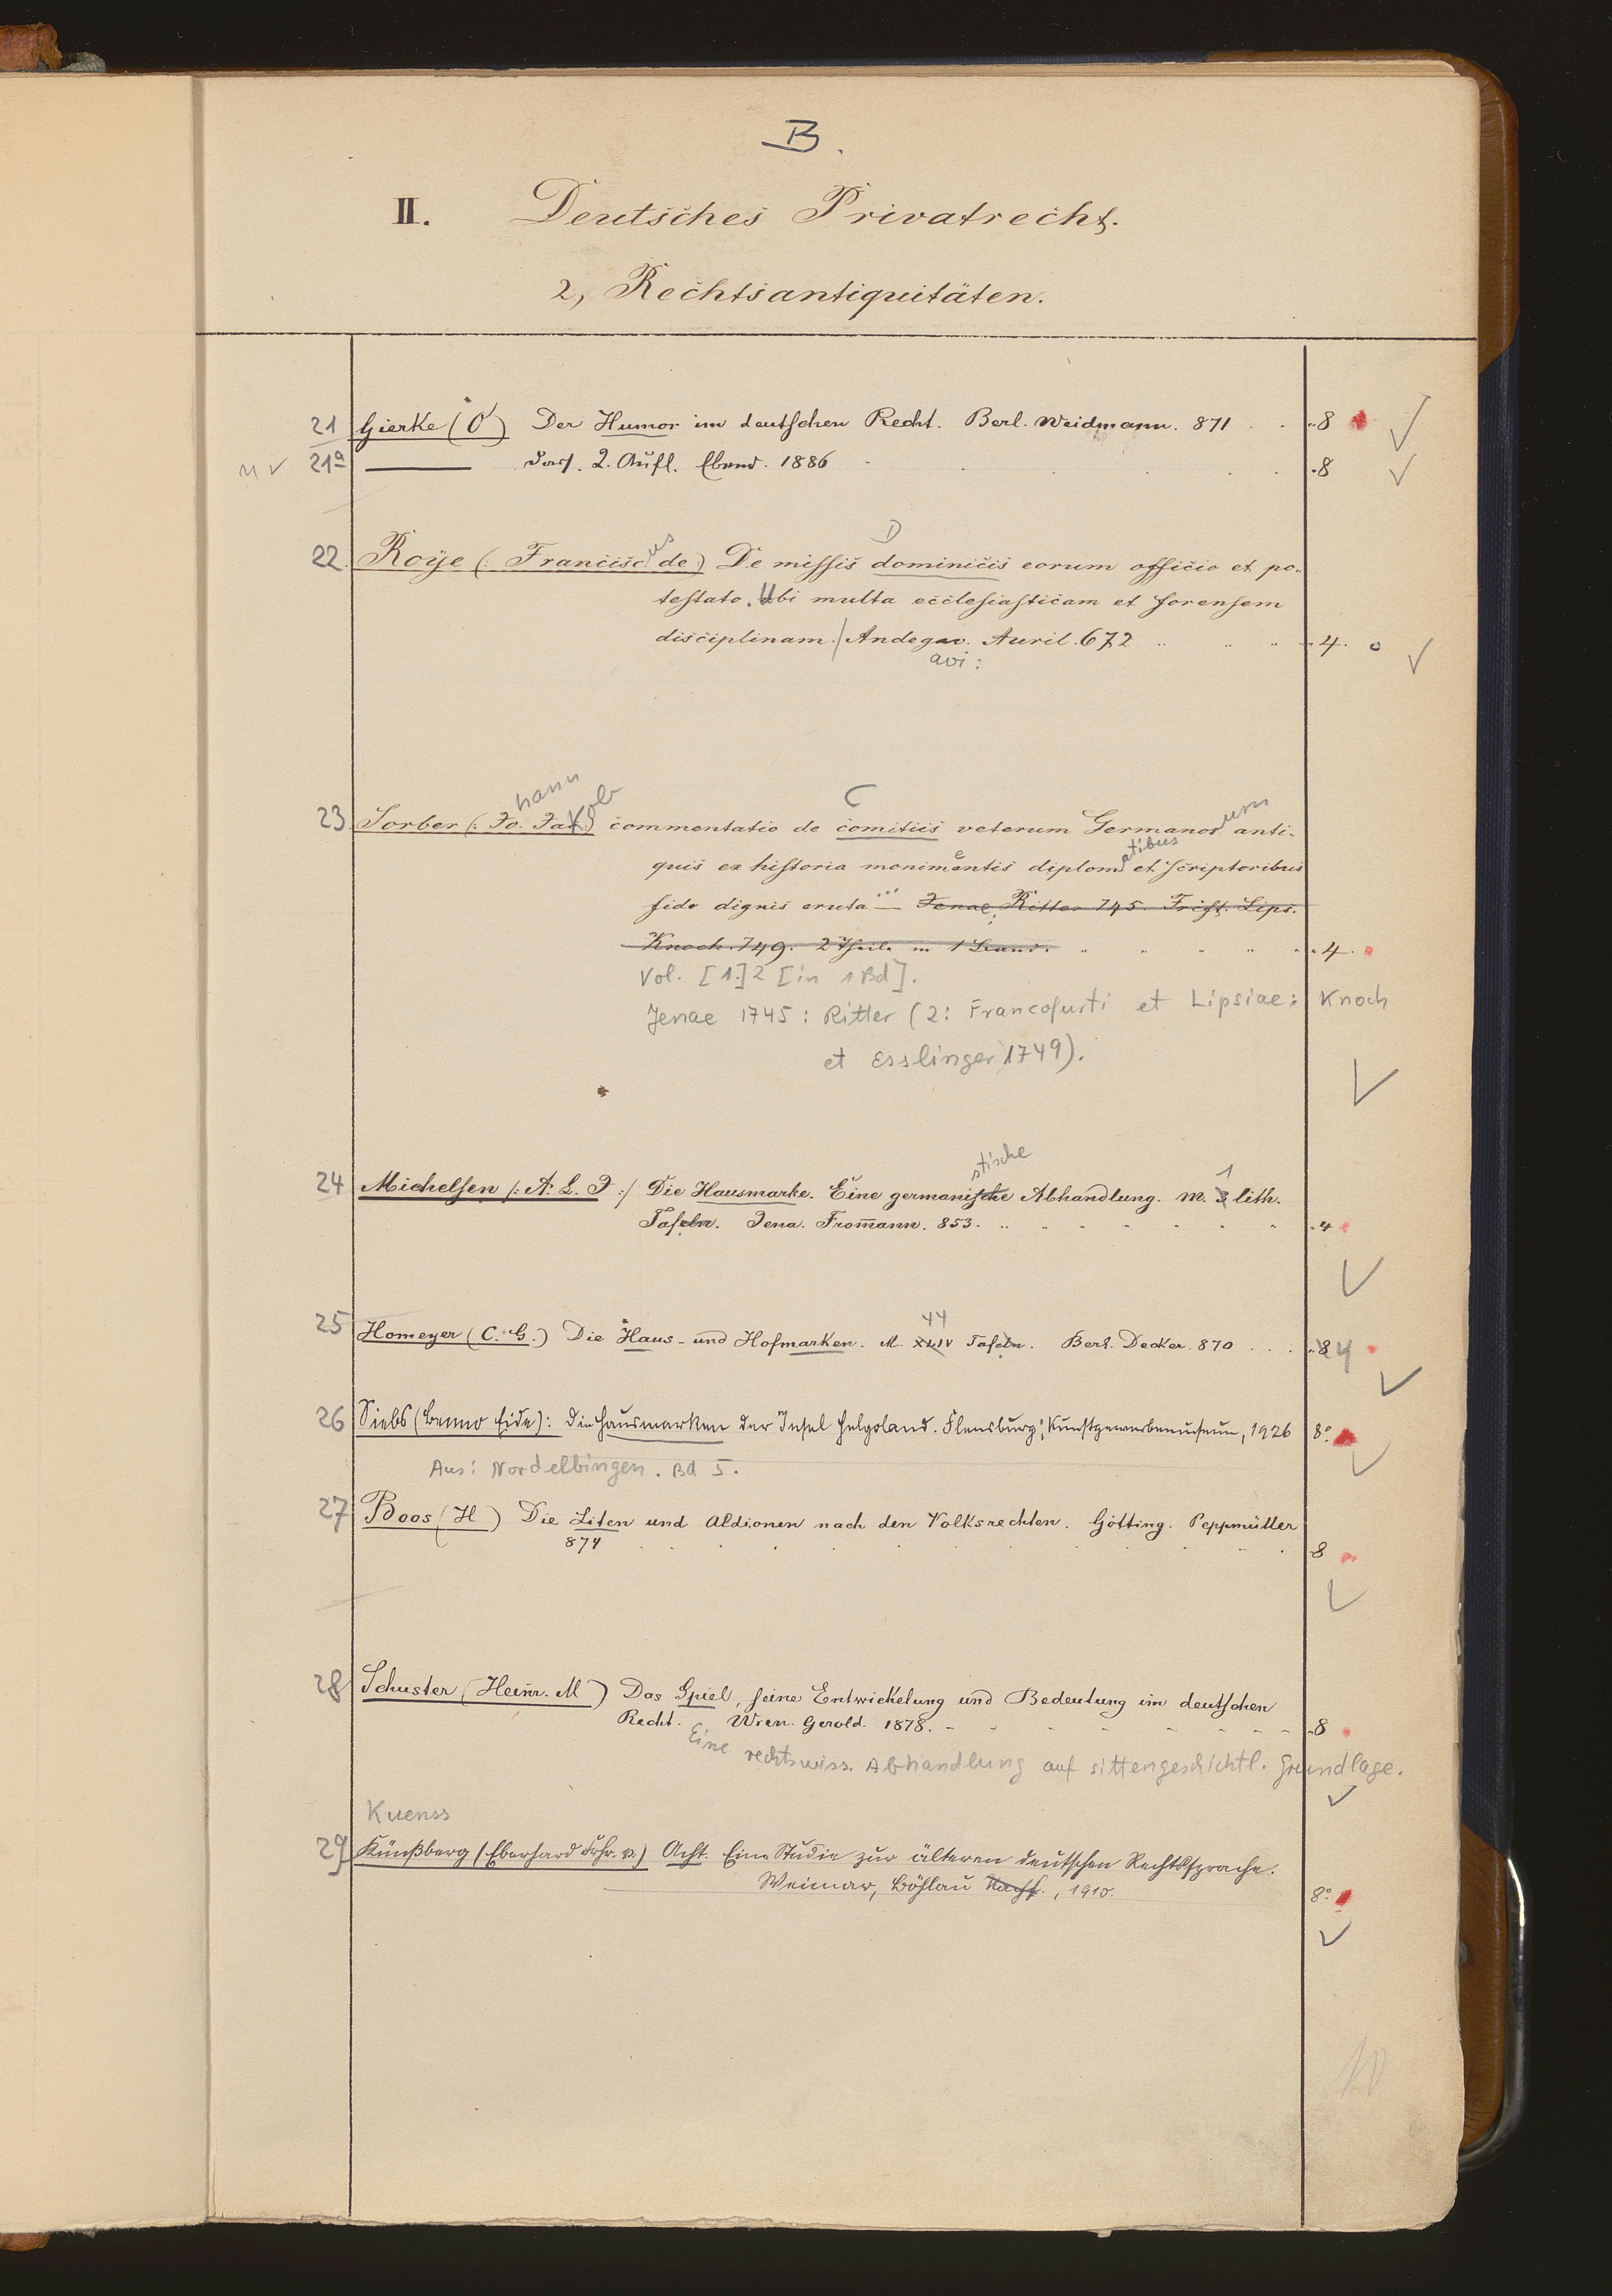 B.
II. Deutsches Privatrecht.
2, Rechtsantiquitäten.
21 Gierke (O) Der Humor im deutschen Recht. Berl. Weidmann. 871 . . 8
21a ——— Dass. 2. Aufl. Ebend. 1886 . . . 8
us D
22. Roÿe (: Francisc de:) De missis dominicis eorum officio et po-
testate. Ubi multa ecclesiasticam et forensem
disciplinam. / Andegav. Auril. 672 4.
avi:
hann kob C um
23 Sorber (: Jo. Jak:) commentatio de comitiis veterum Germanor anti-
atibus
quis ex historia monimentis diplom et scriptoribus
fide dignis eruta ... — Jenae, Ritter 745. Frcft. Lips.
Knoch. 749. 2 Theile in 1 Band. 4.
Vol. [1.] 2 [in 1 Bd].
Jenae 1745 : Ritter (2: Francofurti et Lipsiae: Knoch
et Esslinger 1749).
stische 1
24 Michelsen /: A. L. J :/ Die Hausmarke. Eine germanische Abhandlung. M. 3 lith.
Tafeln. Jena. From̅ann. 853. 4
44
25 Homeyer (C. G.) Die Haus- und Hofmarken. M. XLIV Tafeln. Berl. Decker. 870 . . . 8 4
26 Siebs (Benno Eide): Die Hausmarken der Insel Helgoland. Flensburg: Kunstgewerbemuseum, 1926 8°
Aus: Nordelbingen. Bd 5.
27 Boos (H) Die Liten und Aldionen nach den Volksrechten. Götting. Peppmüller
874 8
28 Schuster (Heinr. M) Das Spiel, seine Entwickelung und Bedeutung im deutschen
Recht. Wien. Gerold. 1878. 8
Eine rechtswiss. Abhandlung auf sittengeschichtl. Grundlage.
Kuenss
29 Künßberg (Eberhard Frhr. v.) Acht. Eine Studie zur älteren deutschen Rechtssprache.
Weimar, Böhlau Nachf., 1910. 8°